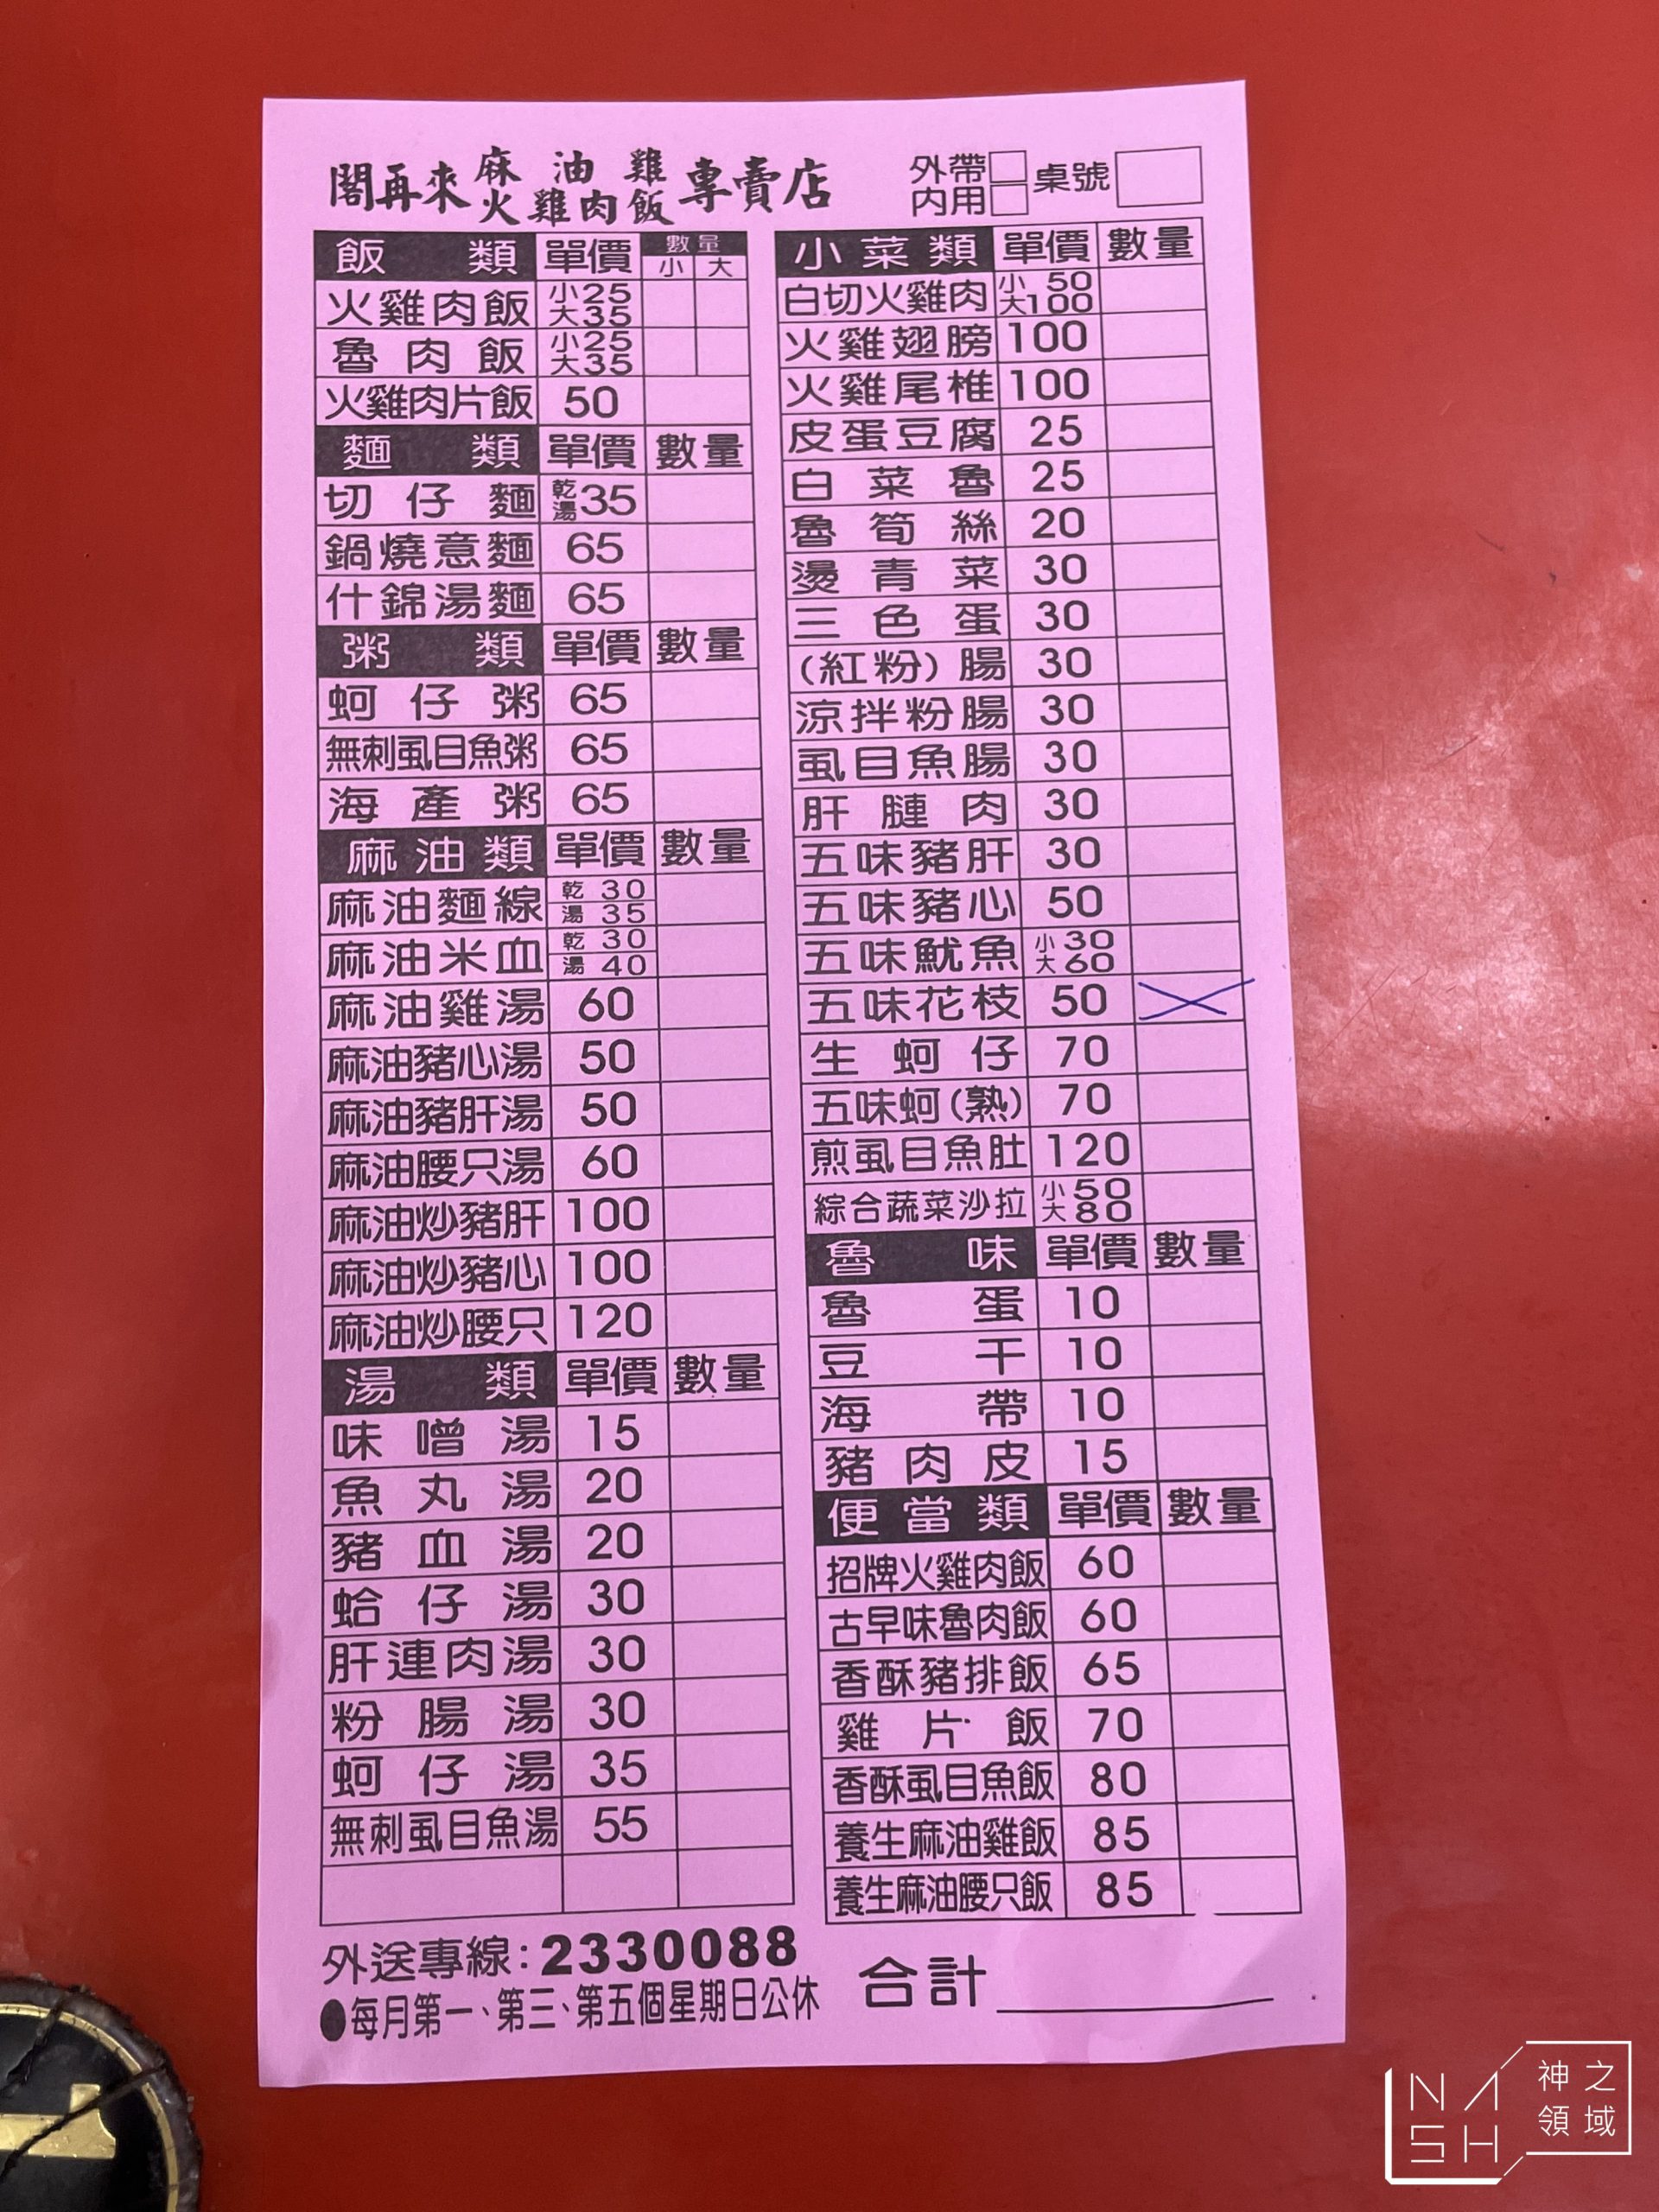 閣再來 麻油雞 專賣店
火雞肉飯
外帶 桌號
內用
飯類 單價 數量
小 大
火雞肉飯 小25
大35
魯肉飯 小25
大35
火雞肉片飯 50
麵類 單價 數量
切仔麵 乾湯35
鍋燒意麵 65
什錦湯麵 65
粥類 單價 數量
蚵仔粥 65
無刺虱目魚粥 65
海產粥 65
麻油類 單價 數量
麻油麵線 乾 30
湯 35
麻油米血 乾 30
湯 40
麻油雞湯 60
麻油豬心湯 50
麻油豬肝湯 50
麻油腰只湯 60
麻油炒豬肝 100
麻油炒豬心 100
麻油炒腰只 120
湯類 單價 數量
味噌湯 15
魚丸湯 20
豬血湯 20
蛤仔湯 30
肝連肉湯 30
粉腸湯 30
蚵仔湯 35
無刺虱目魚湯 55
小菜類 單價 數量
白切火雞肉 小 50
大100
火雞翅膀 100
火雞尾椎 100
皮蛋豆腐 25
白菜魯 25
魯筍絲 20
燙青菜 30
三色蛋 30
(紅粉)腸 30
涼拌粉腸 30
虱目魚腸 30
肝膁肉 30
五味豬肝 30
五味豬心 50
五味魷魚 小 30
大 60
五味花枝 50
生蚵仔 70
五味蚵(熟) 70
煎虱目魚肚 120
綜合蔬菜沙拉 小 50
大 80
魯味 單價 數量
魯蛋 10
豆干 10
海帶 10
豬肉皮 15
便當類 單價 數量
招牌火雞肉飯 60
古早味魯肉飯 60
香酥豬排飯 65
雞片飯 70
香酥虱目魚飯 80
養生麻油雞飯 85
養生麻油腰只飯 85
外送專線:2330088
●每月第一、第三、第五個星期日公休
合計
NASH 神之領域